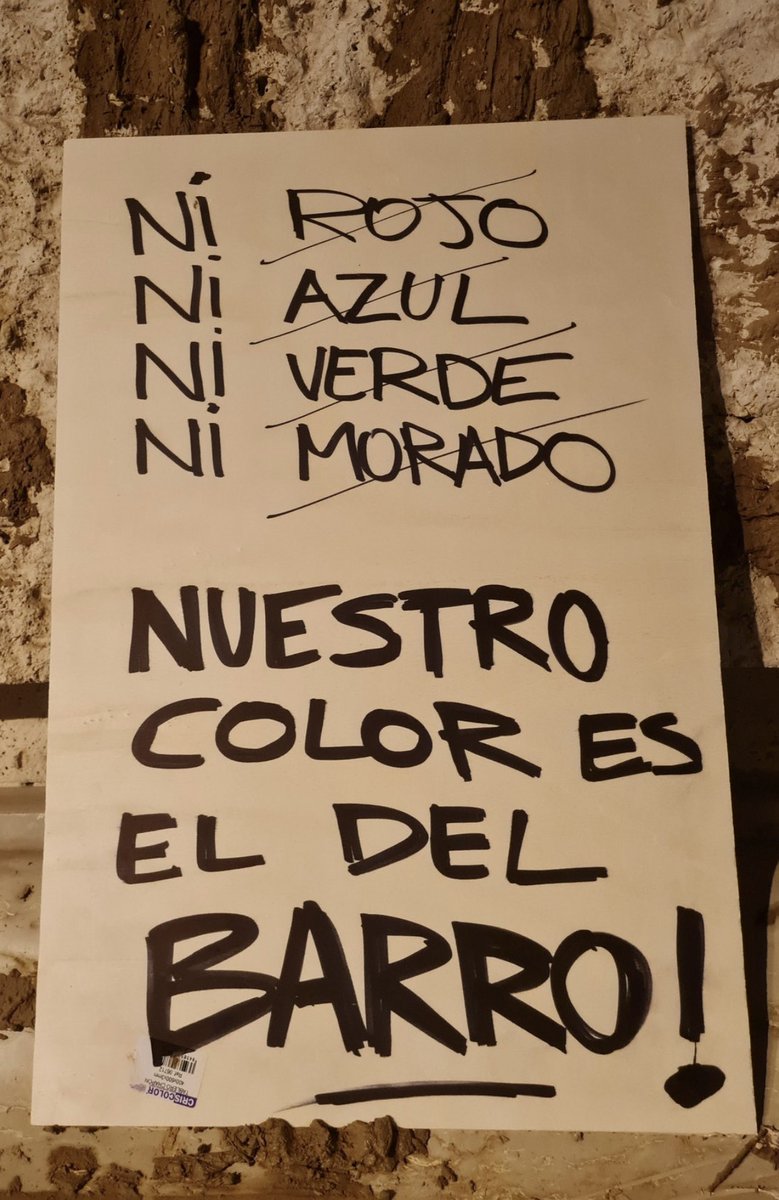 Ni ROJO
Ni AZUL
Ni VERDE
Ni MORADO
NUESTRO
COLOR ES
EL DEL
BARRO!
CRISCOLOR